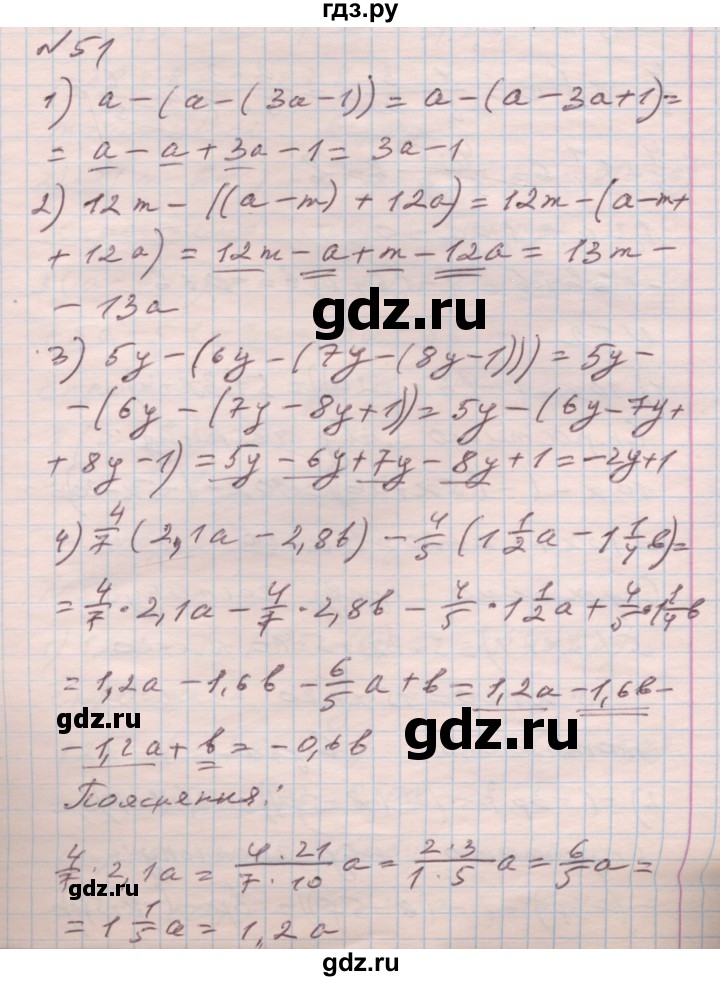 гдз.ру
№51
1) a-(a-(3a-1))=a-(a-3a+1)=
=a-a+3a-1=3a-1
2) 12m-((a-m)+12a)=12m-(a-m+
+12a)=12m-a+m-12a=13m-
-13a
gdz.ru
3) 5y-(6y-(7y-(8y-1)))=5y-
-(6y-(7y-8y+1))=5y-(6y-7y+
+8y-1)=5y-6y+7y-8y+1=-2y+1
4) 4/7(2,1a-2,8b)-4/5(1 1/2a-1 1/4b)=
=4/7·2,1a-4/7·2,8b-4/5·1 1/2a+4/5·1 1/4b
=1,2a-1,6b-6/5a+b=1,2a-1,6b-
gdz.ru
gdz.ru
-1,2a+b=-0,6b
Пояснения:
4/7·2,1a=4·21/7·10a=2·3/1·5a=6/5a=
gdz.ru
=1 1/5a=1,2a
gdz.ru